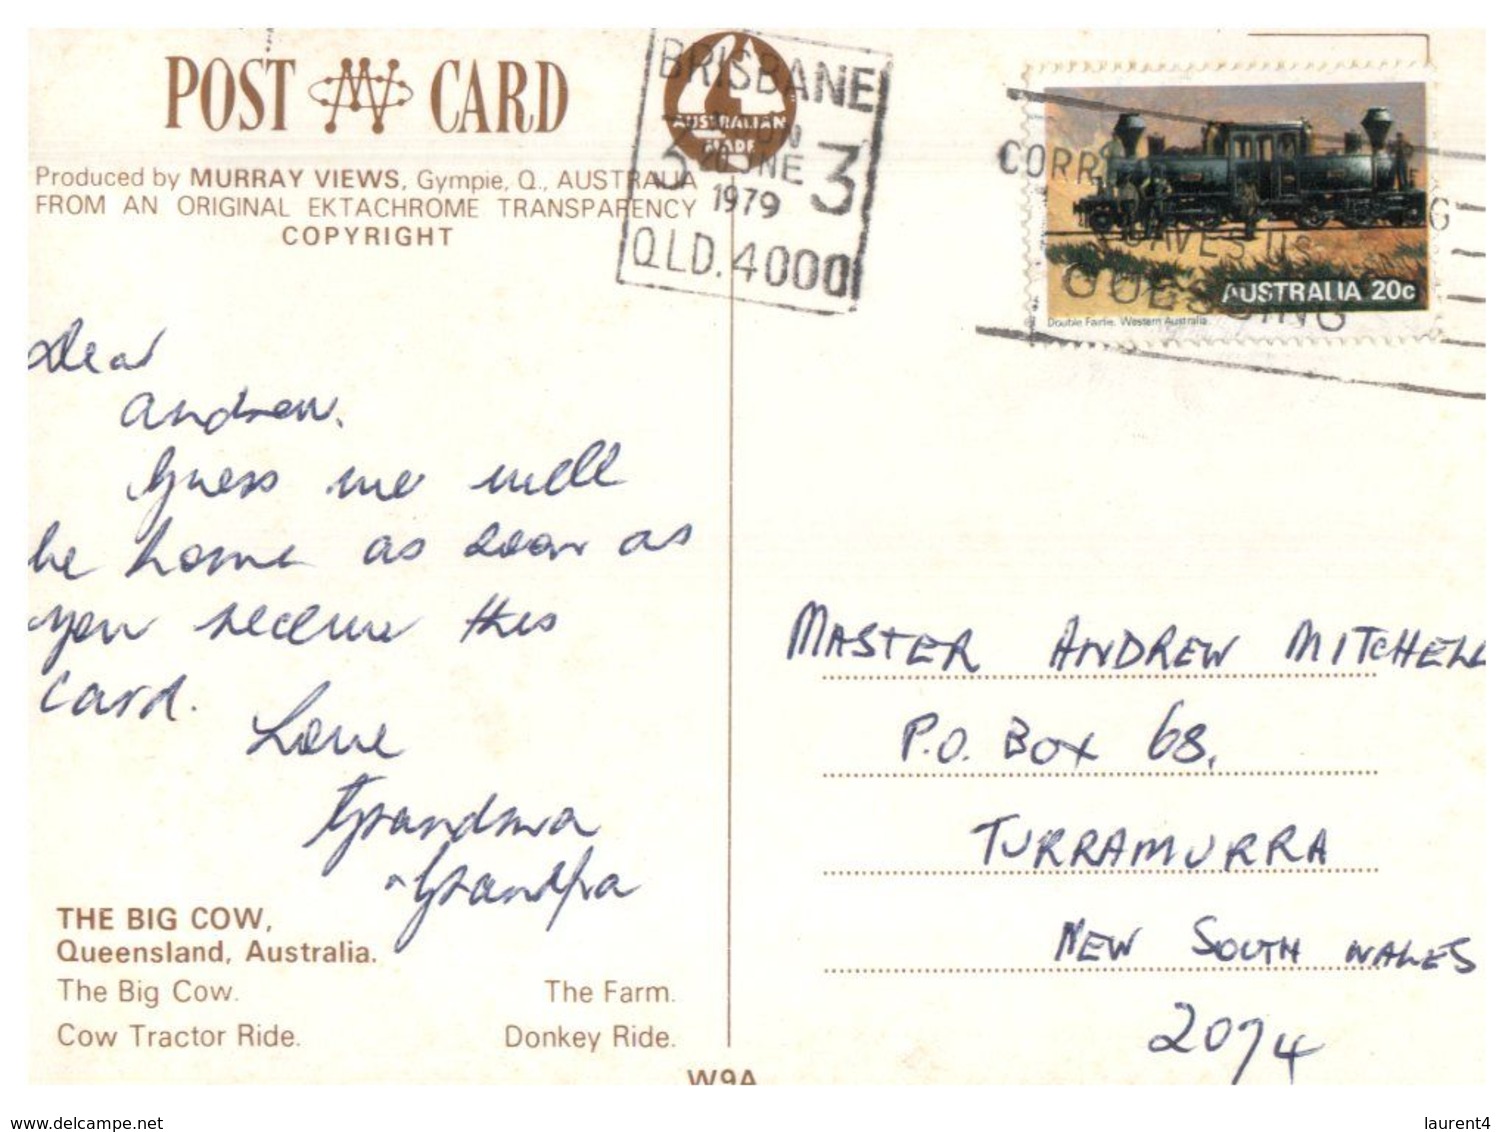 POST CARD
Produced by MURRAY VIEWS, Gympie, Q., AUSTRALIA
FROM AN ORIGINAL EKTACHROME TRANSPARENCY
COPYRIGHT
AUSTRALIAN
MADE
BRISBANE
3 3
1979
QLD. 4000
CORR
LEAVES US
GUESSING
AUSTRALIA 20c
Double Fairlie. Western Australia
Dear
Andrew.
Guess we well
be home as soon as
you receive this
card.
Love
Grandma
Grandpa
THE BIG COW,
Queensland, Australia.
The Big Cow. The Farm.
Cow Tractor Ride. Donkey Ride.
W9A
MASTER ANDREW MITCHELL
P.O. BOX 68,
TURRAMURRA
NEW SOUTH WALES
2074
www.delcampe.net
laurent4